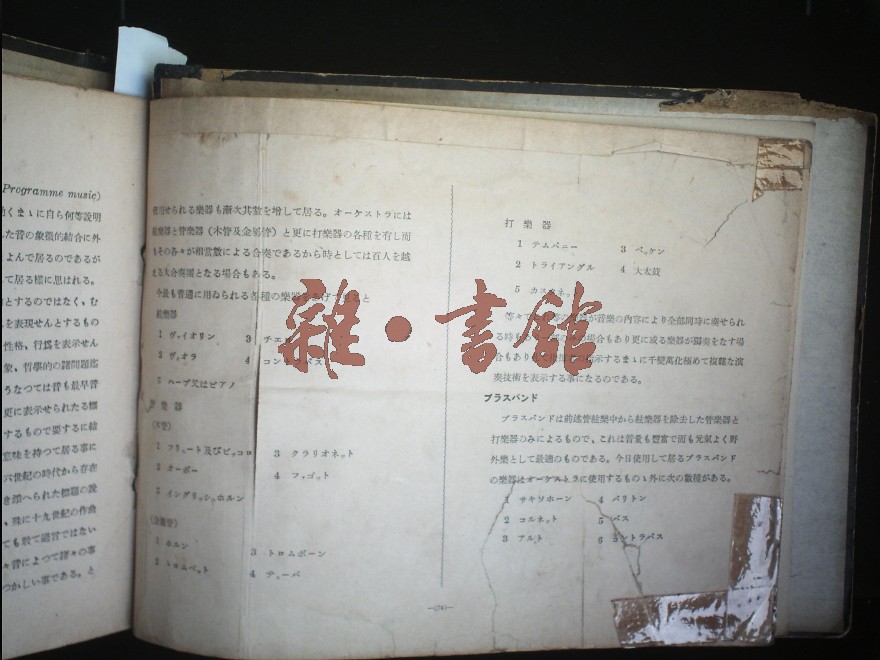 Programme music)
くまゝに自ら何等説明
た音の象徴的結合に外
よんで居るのであるが
て居る樣に思はれる。
とするのではなく、む
を表現せんとするもの
性格、行爲を表示せん
象、哲學的の諸問題迄
うなつては昔も最早昔
更に表示せられたる標
するもので要するに結
意味を持つて居る事に
六世紀の時代から存在
へられた標題の説
、殊に十九世紀の作曲
ても敢て過言ではない
音によつて諸々の事
つかしい事である。と
使用せられる樂器も漸次其數を增して居る。オーケストラには
絃樂器と管樂器(木管及金屬管)と更に打樂器の各種を有し而
もその各々が相當數による合奏であるから時としては百人を越
える大合奏團となる場合もある。
今最も普通に用ゐられる各種の樂器をあげて見ると
絃樂器
1 ヴァイオリン 3 チエロ
2 ヴィオラ 4 コントラバス
5 ハープ又はピアノ
管樂器
(木管)
1 フリュート及びピッコロ 3 クラリオネット
2 オーボー 4 ファゴット
5 イングリッシュホルン
(金屬管)
1 ホルン 3 トロムボーン
2 トロムペット 4 テューバ
打樂器
1 テムパニー 3 ベッケン
2 トライアングル 4 大太鼓
5 カスタネット
等々で
が音樂の內容により全部同時に奏せられ
る時も
の場合もあり更に或る樂器が獨奏をなす場
合もあり
指示するまゝに千變萬化極めて複雜な演
奏技術を表示する事になるのである。
ブラスバンド
ブラスバンドは前述管絃樂中から絃樂器を除去した管樂器と
打樂器のみによるもので、これは音量も豐富で而も元氣よく野
外樂として最適のものである。今日使用して居るブラスバンド
の樂器はオーケストラに使用するものゝ外に次の數種がある。
1 サキソホーン 4 バリトン
2 コルネット 5 バス
3 アルト 6 コントラバス
雜・書館